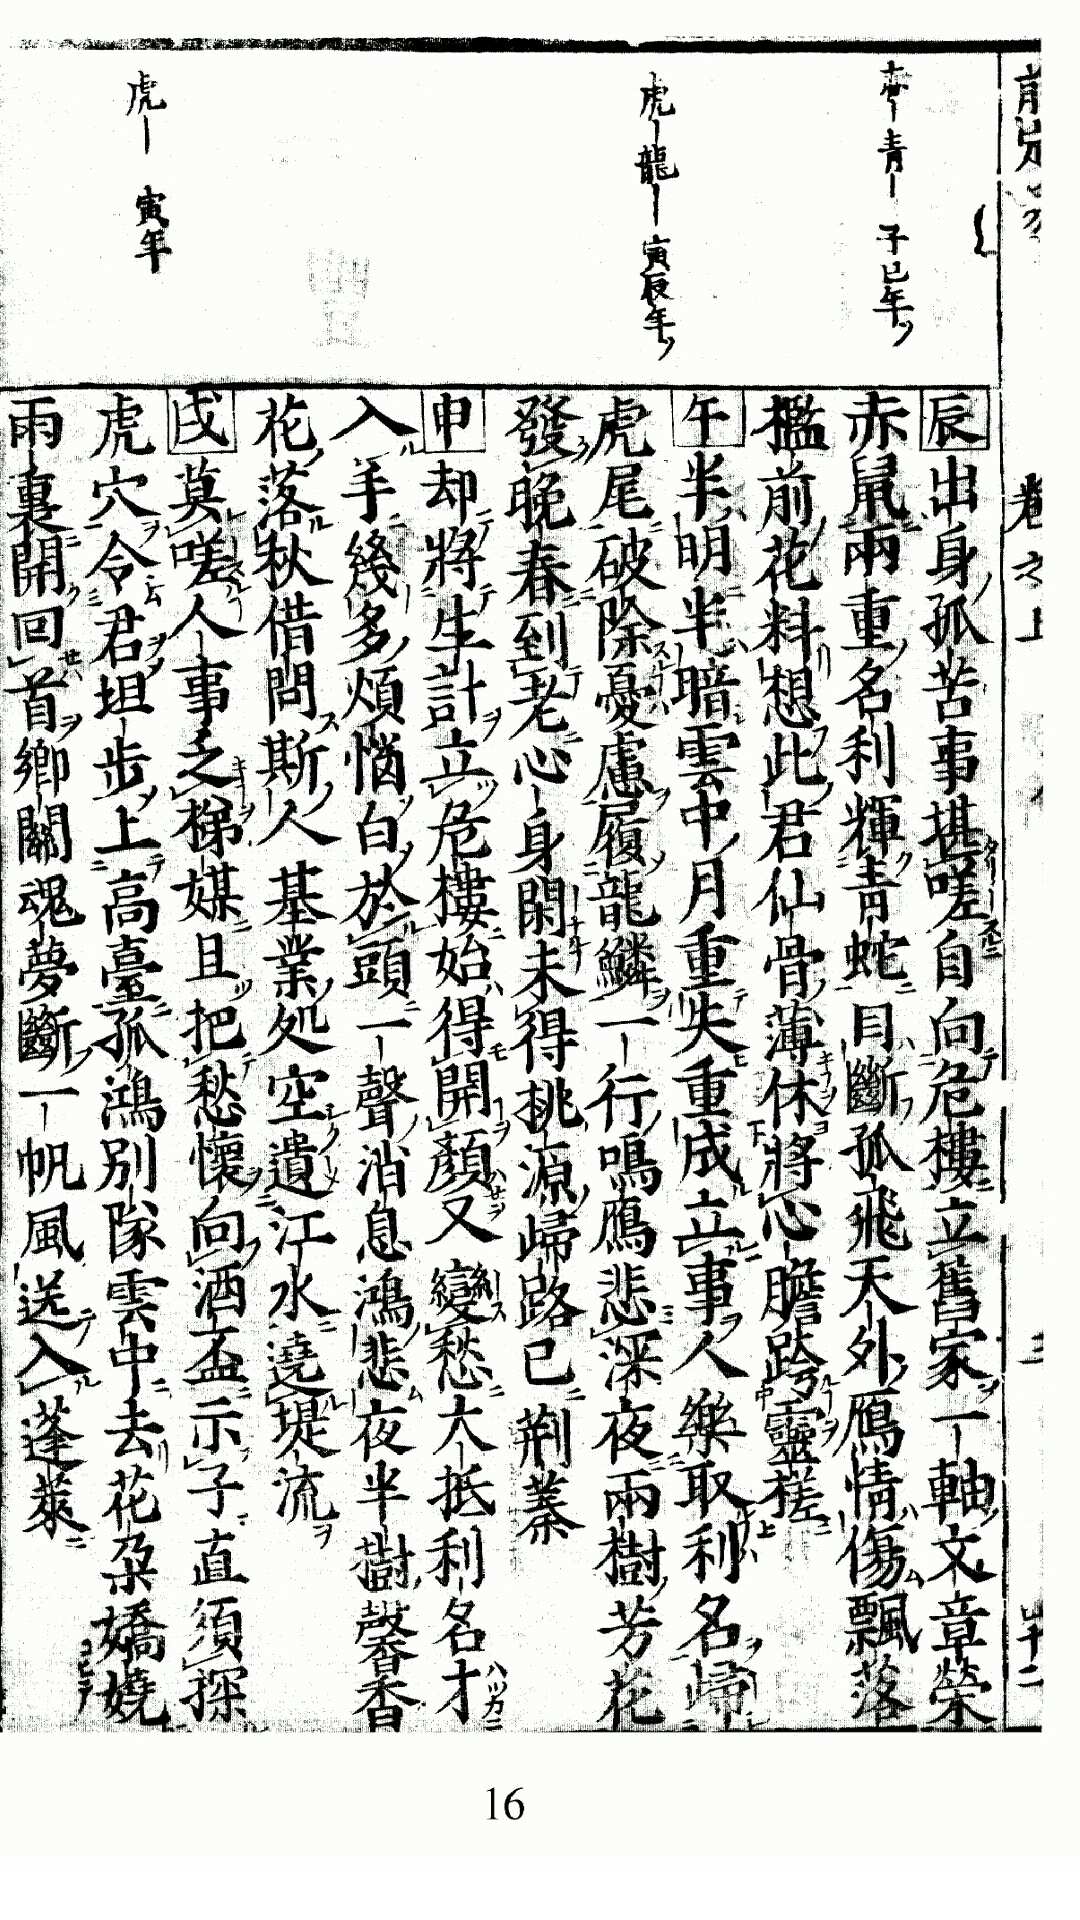 卷之上
十二
赤ー青ー 子巳年ノ
虎ー龍ー 寅辰年ノ
虎ー 寅年
辰 出身孤苦事堪嗟自向危樓立舊家一軸文章榮
赤鼠兩重名利輝青蛇目斷孤飛天外鴈情傷飄落
檻前花料想此君仙骨薄休將心膽跨靈槎
午 半明半暗雲中月重失重成立事人樂取利名歸
虎尾破除憂慮履龍鱗一行鳴鴈悲深夜兩樹芳花
發晚春到老心身閑未得桃源歸路已荆蓁
申 却將生計立危樓始得開顏又變愁大抵利名才
入手幾多煩惱白於頭一聲消息鴻悲夜半樹馨香
花落秋借問斯人基業処空遺江水遶堤流
戌 莫嗟人事之梯媒且把愁懷向酒盃示子直須探
虎穴令君坦步上高臺孤鴻別隊雲中去花朶嬌嬈
雨裏開回首鄉關魂夢斷一帆風送入蓬萊
16